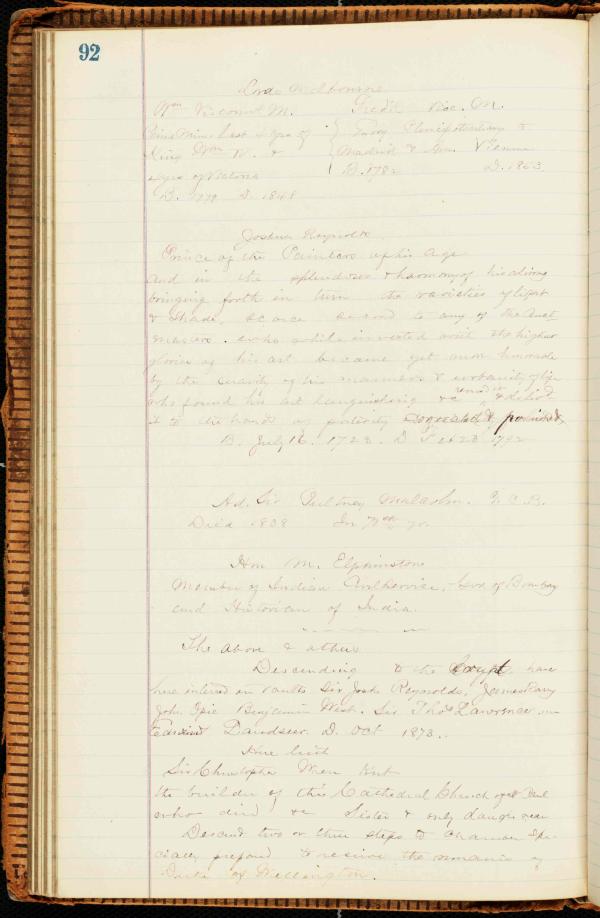 92
Lords Melbourne
Wm Viscount M. Fredk Visc. M.
Prime Minister 4 yrs of Envoy Plenipotentiary to
King Wm IV. & Madrid & Vienna
4 yrs of Victoria B. 1782 D. 1853
B. 1779 D. 1848
Joshua Reynolds
Prince of the Painters of his Age
and in the splendour & harmony of his colors
bringing forth in turn the varieties of light
& shade, scarce second to any of the Anct
Masters. who while invested with the higher
glories of his art became yet more honorable
by the suavity of his manners & urbanity of life
who found his art languishing &c
it to the hands of posterity
B. July 16. 1723. D Feb 23 1792
Ad. Sir Pultney Malcolm. G. C. B.
Died 1838 In yr.
Hon M. Elphinstone
Member of Indian Civil Service, Gov. of Bombay
and Historian of India.
The above & others
Descending to the Crypt. have
here interred in vaults Sir Josh Reynolds, James Barry
John Opie Benjamin West. Sir Thos Lawrence
Edwin Landseer. D. Oct 1873.
Here lieth
Sir Christopher Wren Knt
the builder of this Cathedral Church of St Paul
who died &c Sister & only daugh. near
Descend two or three steps to Chamber spe-
cially prepared to receive the remains of
Duke of Wellington.